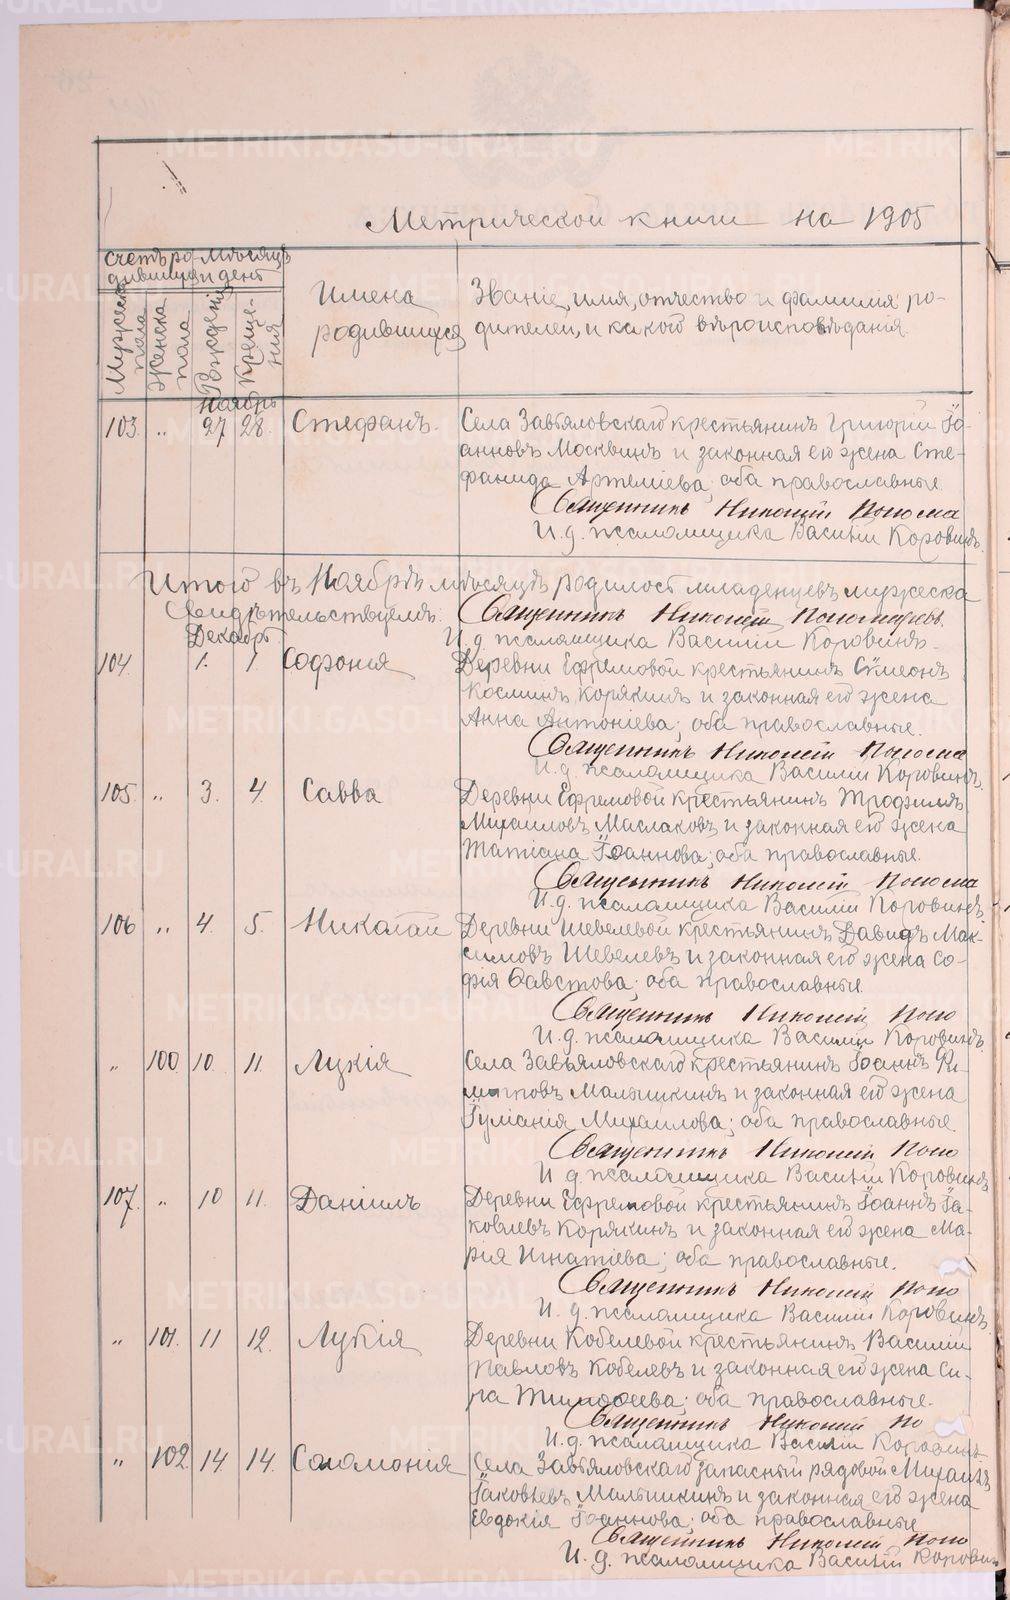 Метрической книги на 1905
Счетъ ро-
дившихся
Мѣсяцъ
и день
Мужеска
пола
Женска
пола
Рожденія
Креще-
нія
Имена
родившихся
Званіе, имя, отчество и фамилія ро-
дителей, и какого вѣроисповѣданія.
Ноябрь
103. „ 27 28. Стефанъ. Села Завьяловскаго крестьянинъ Григорій Іо-
анновъ Москвинъ и законная его жена Сте-
фанида Артеміева; оба православные.
Священникъ Николай Понома
И. д. псаломщика Василій Коровинъ.
Итого въ Ноябрѣ мѣсяцѣ родилось младенцевъ мужеска
Свидѣтельствуемъ: Священникъ Николай Пономаревъ.
Декабрь И. д. псаломщика Василій Коровинъ.
104. 1. 1. Софонія Деревни Ефремовой крестьянинъ Сѵмеонъ
Косминъ Корякинъ и законная его жена
Анна Антоніева; оба православные.
Священникъ Николай Понома
И. д. псаломщика Василій Коровинъ.
105. „ 3. 4. Савва Деревни Ефремовой крестьянинъ Трофимъ
Михаиловъ Маслаковъ и законная его жена
Татіана Іоаннова; оба православные.
Священникъ Николай Понома
И. д. псаломщика Василій Коровинъ.
106 „ 4. 5. Николай Деревни Шевелевой крестьянинъ Давидъ Мак-
симовъ Шевелевъ и законная его жена Со-
фія Савстова; оба православные.
Священникъ Николай Поно
И. д. псаломщика Василій Коровинъ.
„ 100 10. 11. Лукія Села Завьяловскаго крестьянинъ Іоаннъ Фи-
липповъ Малышкинъ и законная его жена
Іуліанія Михаилова; оба православные.
Священникъ Николай Поно
И. д. псаломщика Василій Коровинъ.
107. „ 10 11. Даніилъ Деревни Ефремовой крестьянинъ Іоаннъ Іа-
ковлевъ Корякинъ и законная его жена Ма-
рія Игнатіева; оба православные.
Священникъ Николай Поно
И. д. псаломщика Василій Коровинъ.
„ 101. 11 12. Лукія Деревни Кобелевой крестьянинъ Василій
Павловъ Кобелевъ и законная его жена Си-
ра Тимоѳеева; оба православные.
Священникъ Николай По
И. д. псаломщика Василій Коровинъ
„ 102. 14. 14. Саломонія Села Завьяловскаго запасный рядовой Михаилъ
Іаковлевъ Малышкинъ и законная его жена
Евдокія Іоаннова; оба православные
Священникъ Николай Поно
И. д. псаломщика Василій Коровин